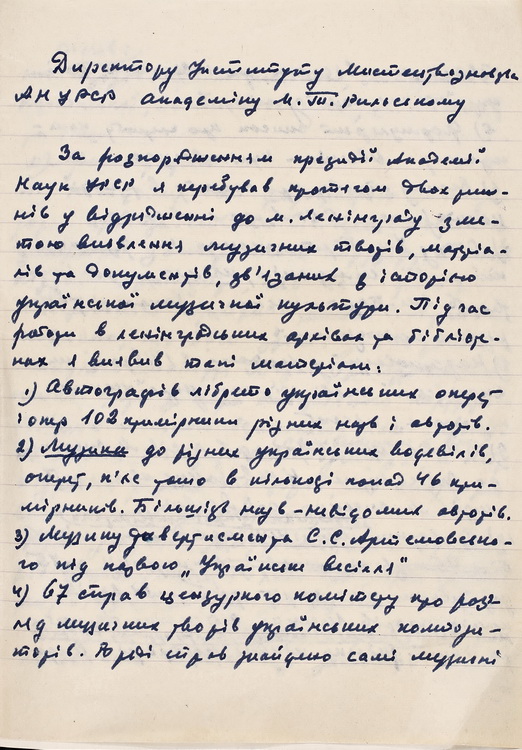 Директору Інституту Мистецтвознавства
АН УРСР академіку М. Т. Рильському
За розпорядженням президії Академії
Наук УРСР я перебував протягом двох тиж-
нів у відрядженні до м. Ленінграду з ме-
тою виявлення музичних творів, матеріа-
лів та документів, зв'язаних з історією
української музичної культури. Під час
роботи в ленінградських архівах та бібліоте-
ках я виявив такі матеріали:
1) Автографів лібретто українських оперет
і опер 102 примірники різних назв і авторів.
2) Музики до різних українських водевілів,
оперет, п'єс тощо в кількості понад 46 при-
мірників. Більшість назв - невідомих авторів.
3) Музику дивертисмента С. С. Артемовсько-
го під назвою „Українське весілля"
4) 67 справ цензурного комітету про розг-
ляд музичних творів українських компози-
торів. В ряді справ знайдено самі музичні